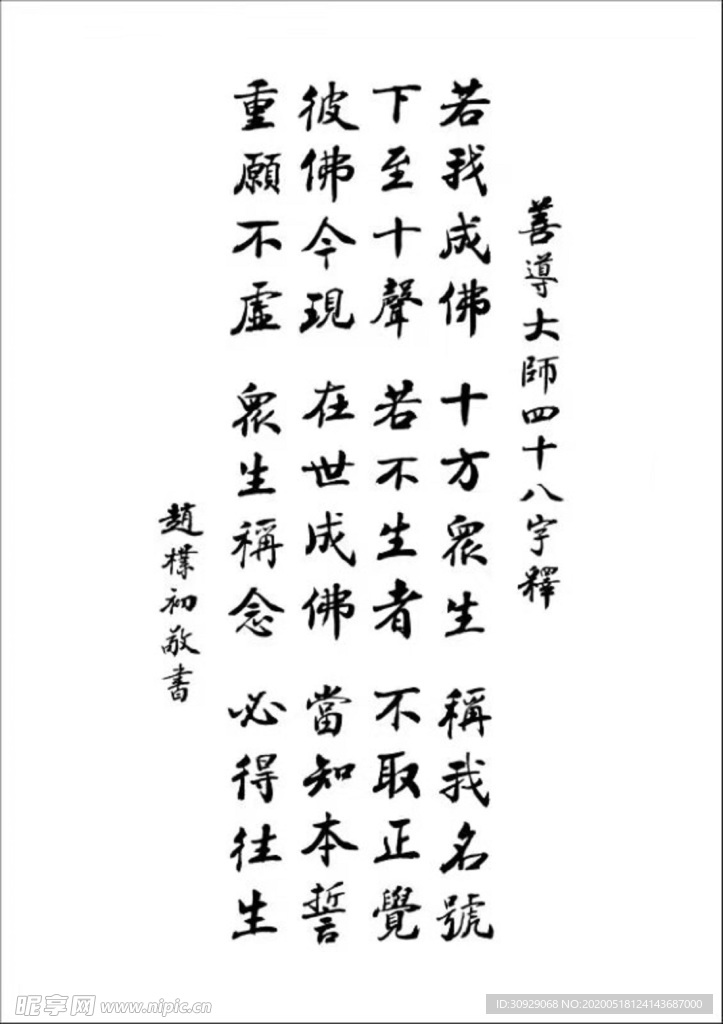 善導大師四十八字釋
若我成佛 十方衆生 稱我名號
下至十聲 若不生者 不取正覺
彼佛今現 在世成佛 當知本誓
重願不虛 衆生稱念 必得往生
趙樸初敬書
昵享网 www.nipic.cn
ID:30929068 NO:20200518124143687000